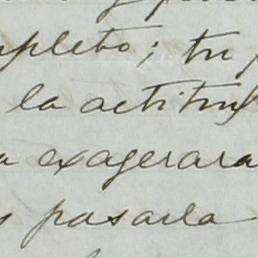 mpleto; tu
la actitud
a exagerara
s pasarla